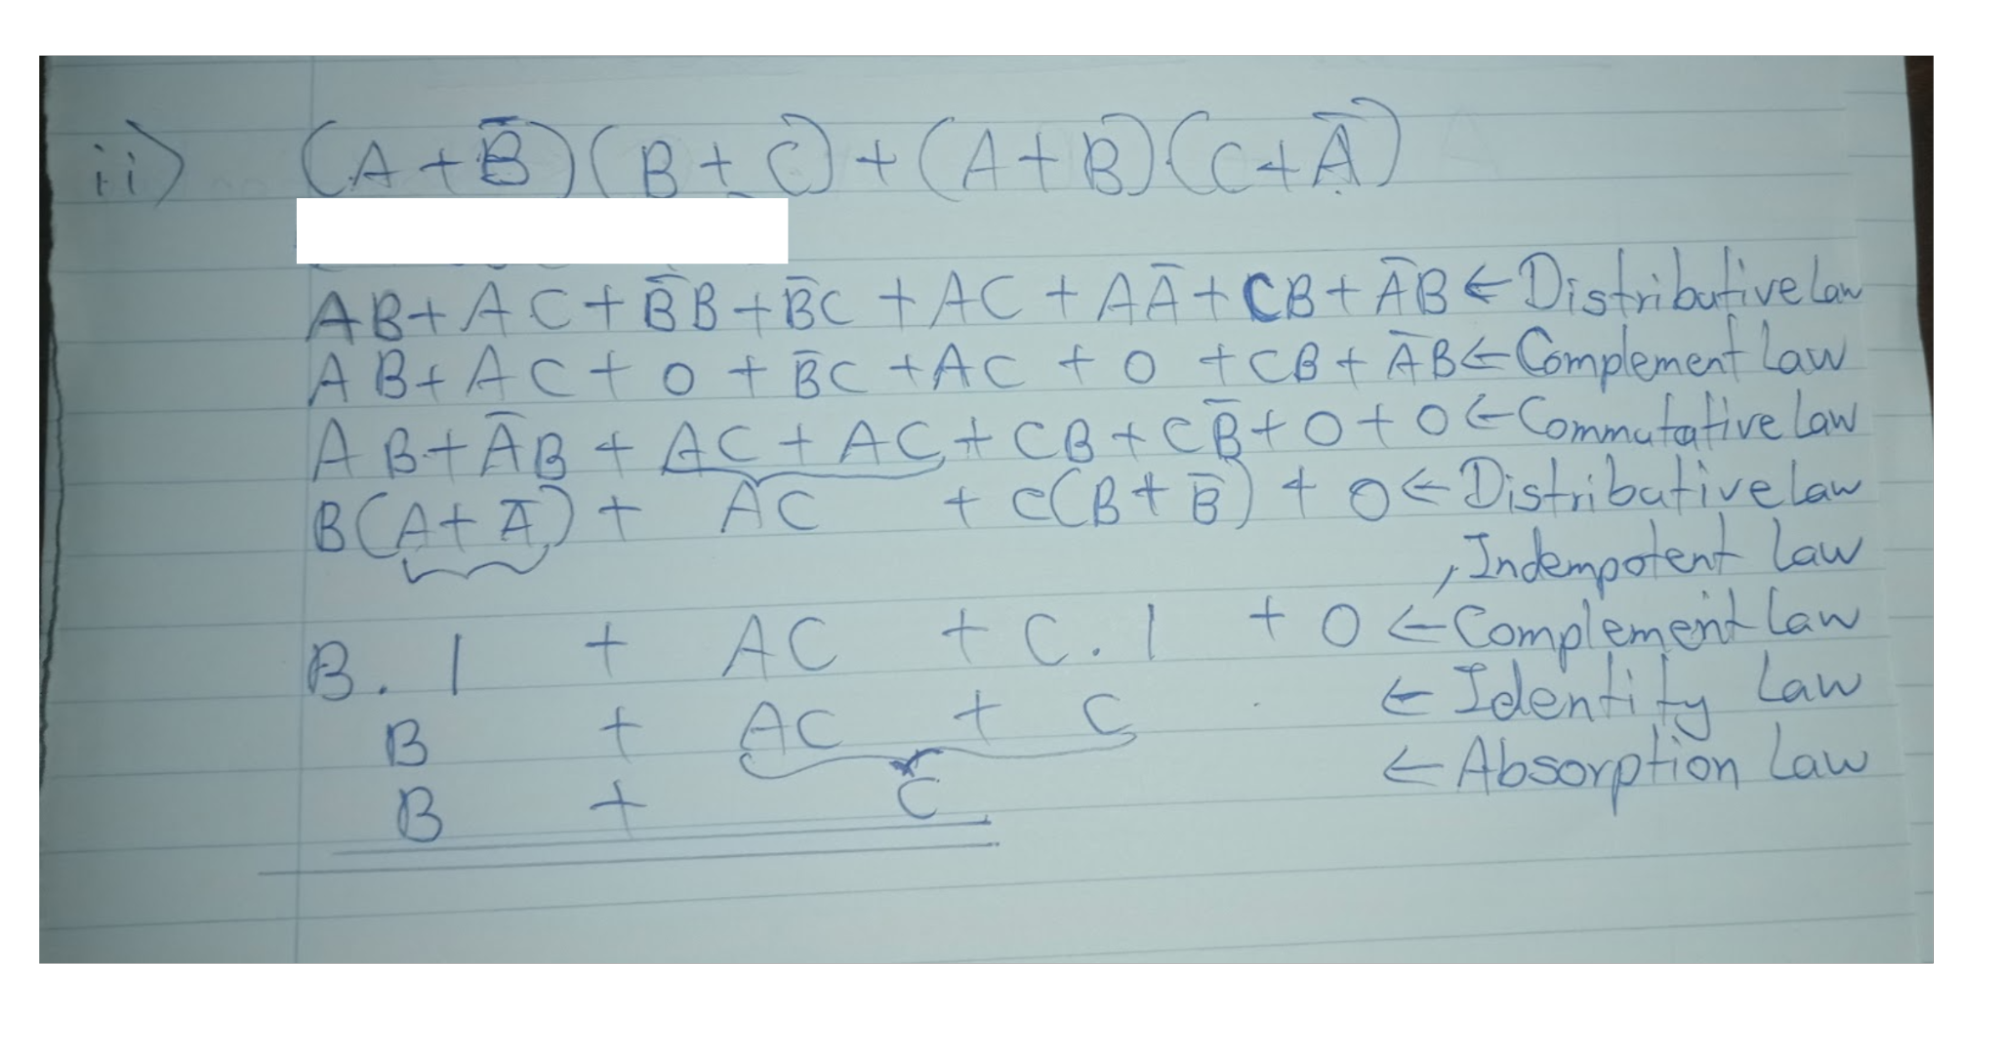 ii) (A+B̅)(B+C)+(A+B)(C+A̅)
AB+AC+B̅B+B̅C+AC+AA̅+CB+A̅B←Distributive Law
AB+AC+0+B̅C+AC+0+CB+A̅B←Complement Law
AB+A̅B+AC+AC+CB+CB̅+0+0←Commutative Law
B(A+A̅)+AC+C(B+B̅)+0←Distributive Law
,Indempotent Law
B.1+AC+C.1+0←Complement Law
B+AC+C←Identity Law
B+C←Absorption Law